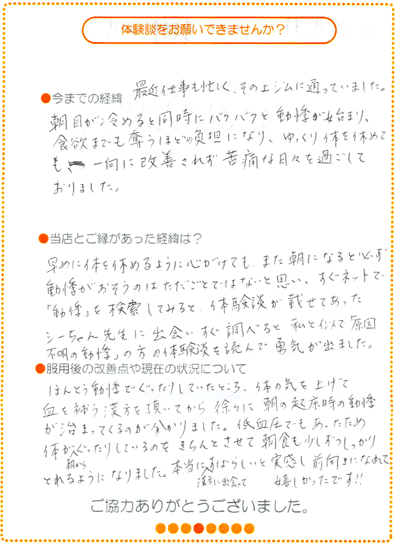 体験談をお願いできませんか？
●今までの経緯 最近仕事も忙しく、その上ジムに通っていました。
朝目が冷めると同時にバクバクと動悸が始まり、
食欲までも奪うほどの負担になり、ゆっくり体を休めて
も、一向に改善されず苦痛な日々を過ごして
おりました。
●当店とご縁があった経緯は？
早めに体を休めるように心がけても、また朝になると必ず
動悸がおそうのはただごとではないと思い、すぐネットで
「動悸」を検索してみると、体験談が載せてあった
シーちゃん先生に出会いすぐ調べると私と似て「原因
不明の動悸」の方の体験談を読んで勇気が出ました。
●服用後の改善点や現在の状況について
ほんとう動悸でぐったりしていたところ、体の気を上げて
血を補う漢方を頂いてから徐々に朝の起床時の動悸
が治まってくるのが分かりました。低血圧でもあったため
体がぐったりしているのをきちんとさせて朝食も少しずつしっかり
朝から
とれるようになりました。本当にすばらしいと実感し前向きになれて
漢方に出会って 嬉しかったです!!
ご協力ありがとうございました。